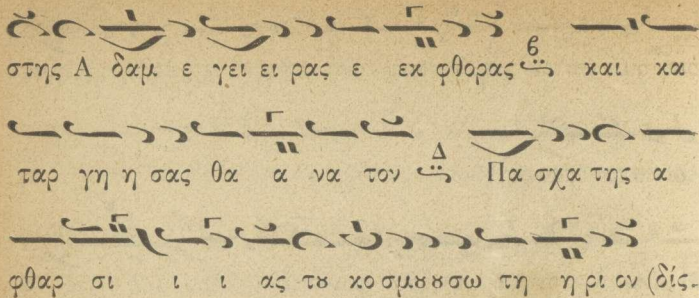 στης Α δαμ ε γει ει ρας ε εκ φθορας και κα
ταρ γη η σας θα α να τον Πα σχα της α
φθαρ σι ι ι ας τȣ κο σμȣ ȣ σω τη η ρι ον (δίς.